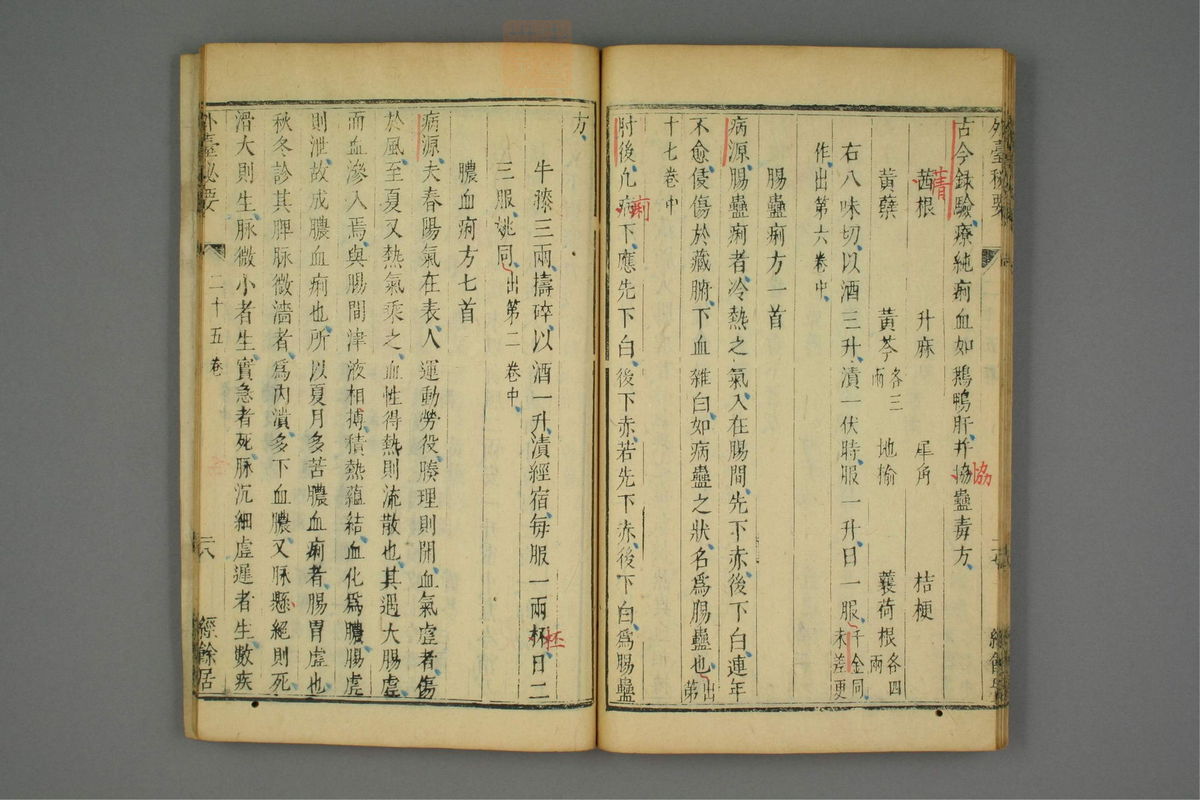 外臺秘要
古今録驗療純痢血如鵝鴨肝并協蠱毒方
協
茜根 升麻 犀角 桔梗
青
黄蘗 黄芩各三兩 地榆 蘘荷根各四兩
右八味切以酒三升漬一伏時服一升日一服千金同未差更
作出第六卷中
腸蠱痢方一首
病源腸蠱痢者冷熱之氣入在腸間先下赤後下白連年
不愈侵傷於藏腑下血雜白如病蠱之狀名爲腸蠱也出第
十七卷中
肘後凡病下應先下白後下赤若先下赤後下白爲腸蠱
痢
方
牛膝三兩擣碎以酒一升漬經宿每服一兩杯日二
坯
三服姚同出第二卷中
膿血痢方七首
病源夫春陽氣在表人運動勞役腠理則開血氣虛者傷
於風至夏又熱氣乘之血性得熱則流散也其遇大腸虛
而血滲入焉與腸間津液相搏積熱蘊結血化爲膿腸虛
則泄故成膿血痢也所以夏月多苦膿血痢者腸胃虛也
秋冬診其脾脉微濇者爲内潰多下血膿又脉懸絕則死
滑大則生脉微小者生實急者死脉沉細虛遲者生數疾
外臺秘要 二十五卷 二八 經餘居